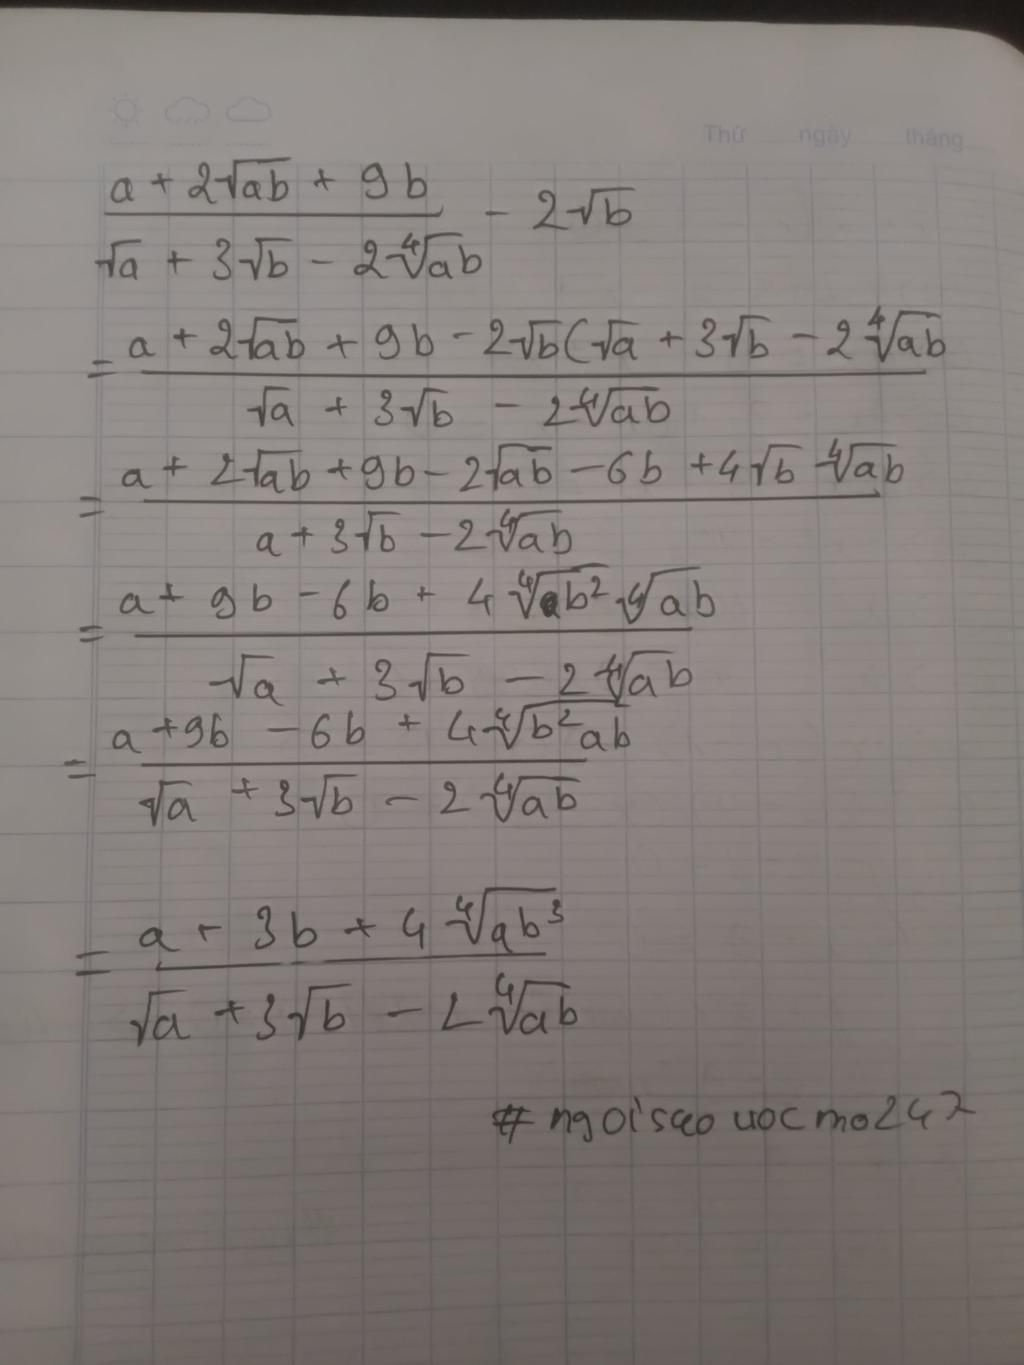 Thứ ngày tháng
a + 2√ab + 9b
- 2√b
√a + 3√b - 2∜ab
a + 2√ab + 9b - 2√b(√a + 3√b - 2∜ab
=
√a + 3√b - 2∜ab
a + 2√ab + 9b - 2√ab - 6b + 4√b ∜ab
=
a + 3√b - 2∜ab
a + 9b - 6b + 4∜b² ∜ab
=
√a + 3√b - 2∜ab
a + 9b - 6b + 4∜b²ab
=
√a + 3√b - 2∜ab
a + 3b + 4∜ab³
=
√a + 3√b - 2∜ab
# ngoisaouocmo247